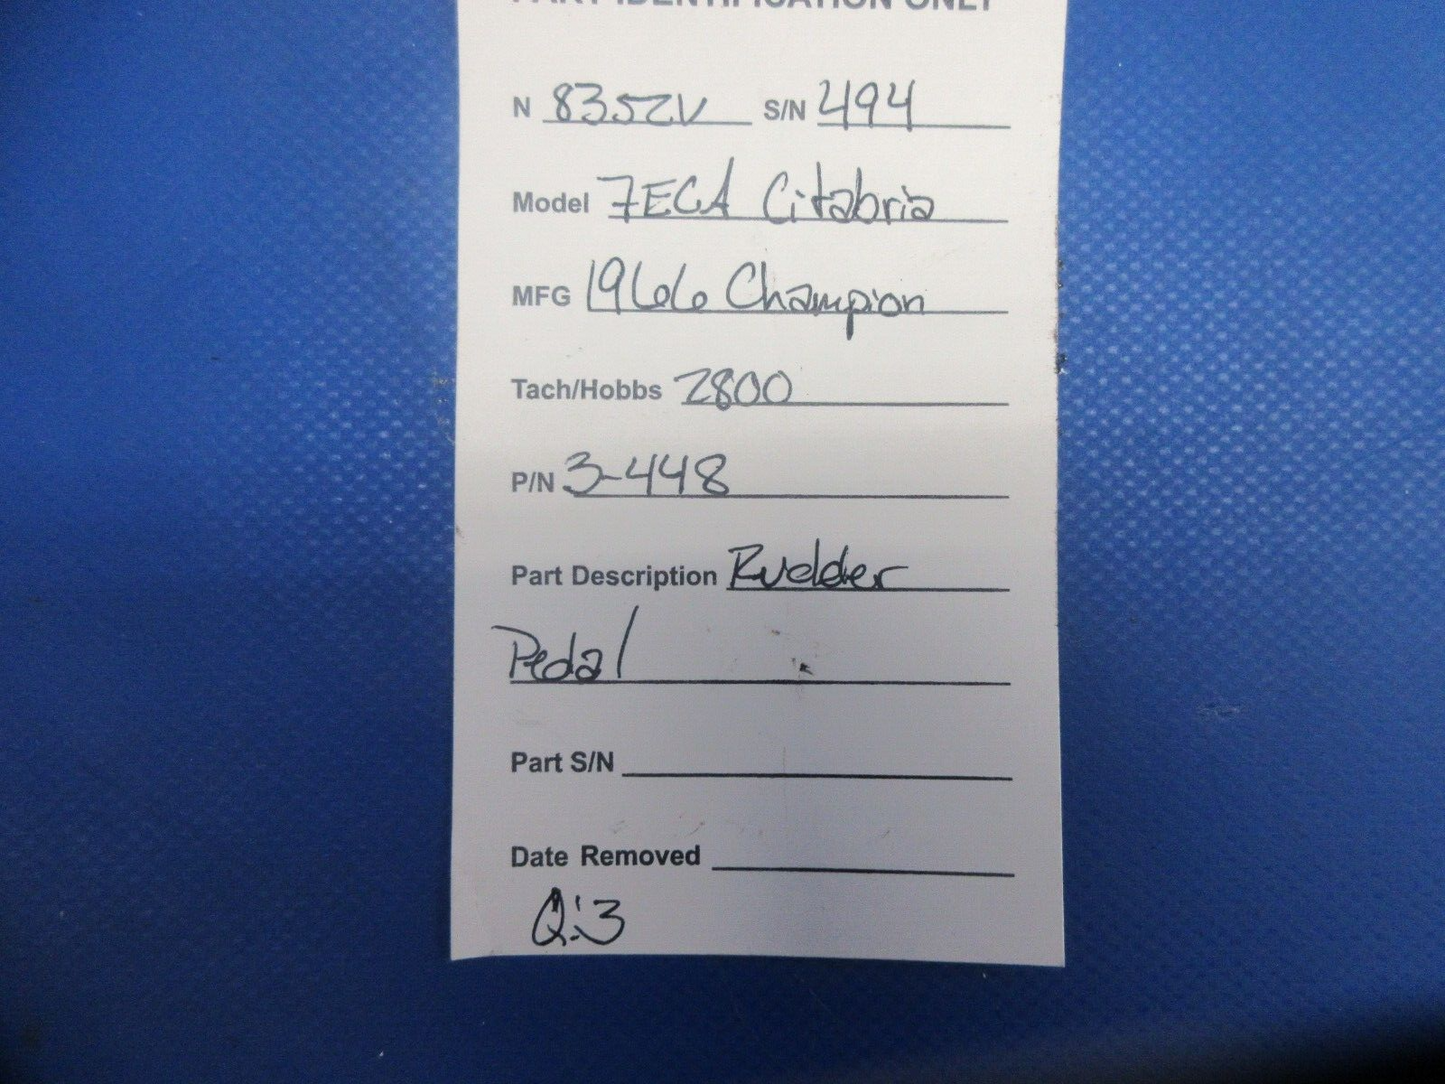 PART IDENTIFICATION ONLY
N 8352V S/N 494
Model 7ECA Citabria
MFG 1966 Champion
Tach/Hobbs 2800
P/N 3-448
Part Description Rudder
Pedal
Part S/N
Date Removed
Q:3